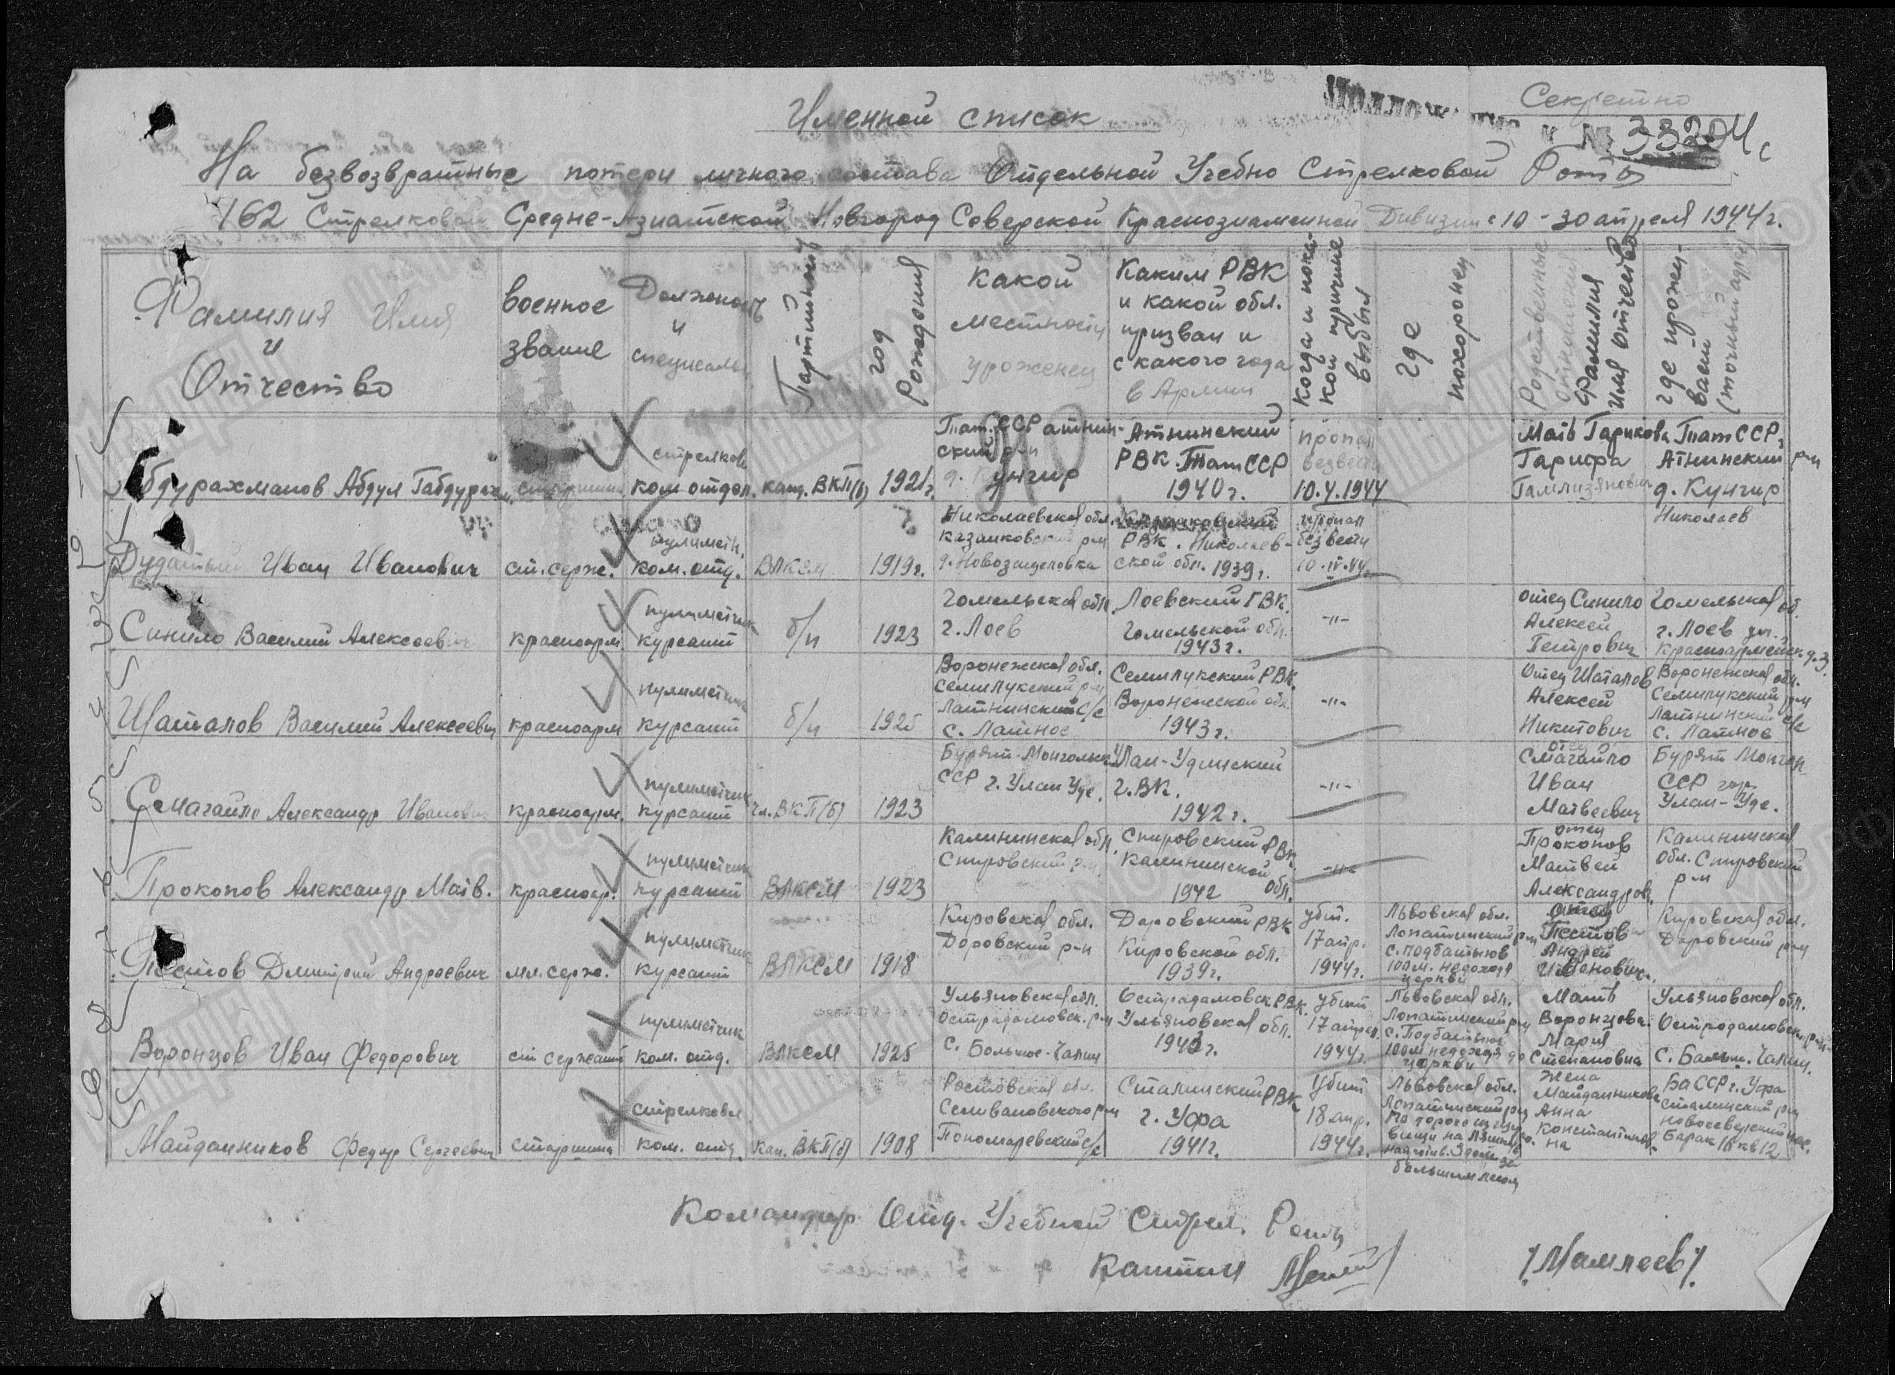 Секретно
Именной список
№ 33204с
На безвозвратные потери личного состава Отдельной Учебно Стрелковой Роты
162 Стрелковой Средне-Азиатской Новгород Северской Краснознаменной Дивизии с 10-30 апреля 1944г.
Фамилия Имя и Отчество
военное звание
Должность и специальн
Партийность
год Рождения
какой местности уроженец
Каким РВК и какой обл. призван и с какого года в Армии
когда и по какой причине выбыл
где похоронен
Родственные отношения Фамилия имя отчество
где прожевает (точный адрес)
1 Абдурахманов Абдул Габдурахм. старшина стрелков ком отдел. канд. ВКП(б) 1921г.
Тат. ССР атнинский р-н д. Кунгир
Атнинский РВК. ТатССР 1940г.
пропал безвести 10.4.1944
Мать Гарипова Гарифа Гамлизяновна
ТатССР, Атнинский р-н д. Кунгир
2 Иван Иванович ст. серж. пулиметч. ком. отд. ВЛКСМ 1919г.
Николаевская обл. Казанковский р-н
РВК. Николаевской обл. 1939г.
пропал безвести 10.IV.44
Николаев
3 Синило Василий Алексеевич красноарм пулиметчик курсант б/п 1923
Гомельская обл. г. Лоев
Лоевский ГВК. Гомельской обл. 1943г.
-"-
отец Синило Алексей Петрович
Гомельская об. г. Лоев ул. Красноармейск. д. 3.
4 Шаталов Василий Алексеевич красноарм пулиметчик курсант б/п 1925
Воронежская обл. Семилукский р-н Латнинский с/с с. Латное
Семилукский РВК. Воронежской обл. 1943г.
-"-
Отец Шаталов Алексей Никитович
Воронежская обл. Семилукский р-н Латнинский с/с с. Латное
5 Смагайло Александр Иванович красноарм. пулиметчик курсант чл. ВКП(б) 1923
Бурят-Монгольск. ССР г. Улан Уде.
Улан-Удинский г. ВК. 1942г.
-"-
отец Смагайло Иван Матвеевич
Бурят Монгол. ССР гор. Улан-Уде.
6 Прокопов Александр Матв. красноар. пулиметчик курсант ВЛКСМ 1923
Калининская обл. Спировский р-н
Спировский РВК Калининской обл. 1942
-"-
отец Прокопов Матвей Александров.
Калининская обл. Спировский р-н
7 Пестов Дмитрий Андреевич мл. серж. пулиметчик курсант ВЛКСМ 1918
Кировская обл. Даровский р-н
Даровский РВК Кировской обл. 1939г.
убит. 17 апр. 1944г.
Львовская обл. Лопатинский р-н с. Подбатьтов 100 м. недоходя церкви
отец Пестов Андрей
Кировская обл. Даровский р-н
8 Воронцов Иван Федорович ст сержант пулиметчик ком. отд. ВЛКСМ 1925
Ульяновская обл. Астрадамовск. р-н с. Большое-Чалпан
Астрадамовск РВК. Ульяновской обл. 1943г.
убит 17 апрел. 1944г.
Львовская обл. Лопатинский р-н 100 м недоходя до церкви
Мать Воронцова Мария Степановна
Ульяновская обл. Астродамовск. р-н
9 Майданников Федор Сергеевич старшина стрелковы ком. отд. Кан. ВКП(б) 1908
Ростовская об. Селивановского р-н Пономаревский с/с
Сталинский РВК г. Уфа 1941г.
Убит 18 апр. 1944г.
Львовская обл. Лопатинский р-н
Жена Майданникова Анна Константиновна
БаССР г. Уфа Сталинский р-н Барак 18 кв 12
Командир Отд. Учебной Стрел. Роты
Капитан /Мамлеев/.